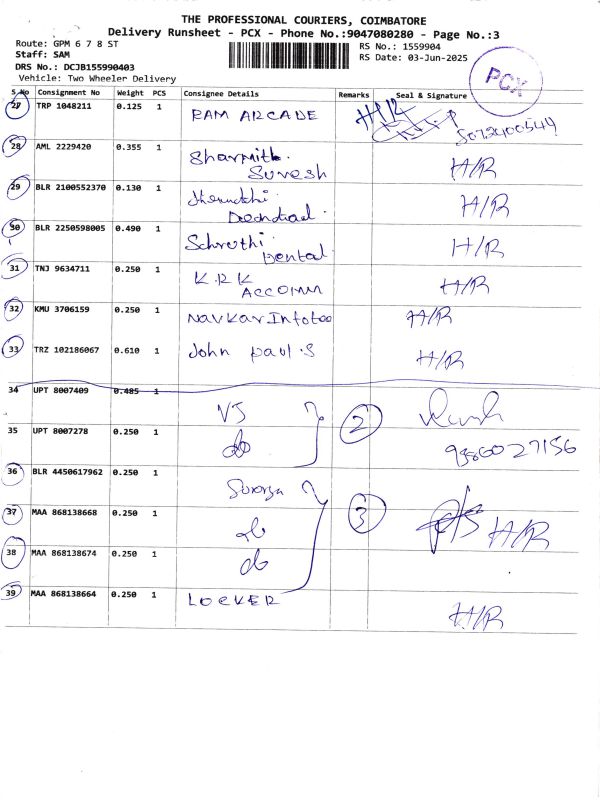 THE PROFESSIONAL COURIERS, COIMBATORE
Delivery Runsheet - PCX - Phone No.:9047080280 - Page No.:3
Route: GPM 6 7 8 ST
RS No.: 1559904
Staff: SAM
RS Date: 03-Jun-2025
DRS No.: DCJB155990403
Vehicle: Two Wheeler Delivery
PCX
S.No Consignment No Weight PCS Consignee Details Remarks Seal & Signature
27 TRP 1048211 0.125 1 RAM ARCADE
28 AML 2229420 0.355 1 Sharmith. Suresh H/R
29 BLR 2100552370 0.130 1 H/R
30 BLR 2250598005 0.490 1 Schruthi Dental H/R
31 TNJ 9634711 0.250 1 K.R.K ACCOMM H/R
32 KMU 3706159 0.250 1 Navkar Infotec H/R
33 TRZ 102186067 0.610 1 John paul.S H/R
34 UPT 8007409 0.485 1 VJ 2
35 UPT 8007278 0.250 1 do 9386027156
36 BLR 4450617962 0.250 1 3
37 MAA 868138668 0.250 1 do H/R
38 MAA 868138674 0.250 1 do
39 MAA 868138664 0.250 1 LOCKER H/R